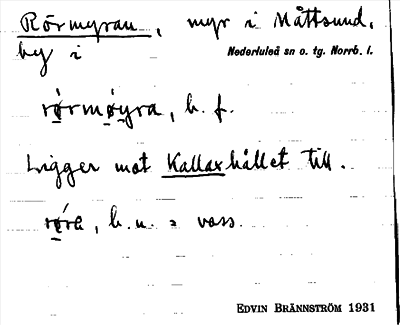 Rörmyran, myr i Måttsund,
by i Nederluleå sn o. tg. Norrb. l.
rǿ̣rmø̣yra, b. f.
Ligger mot Kallaxhållet till.
rǿ̣ra, b. n. = vass.
EDVIN BRÄNNSTRÖM 1931